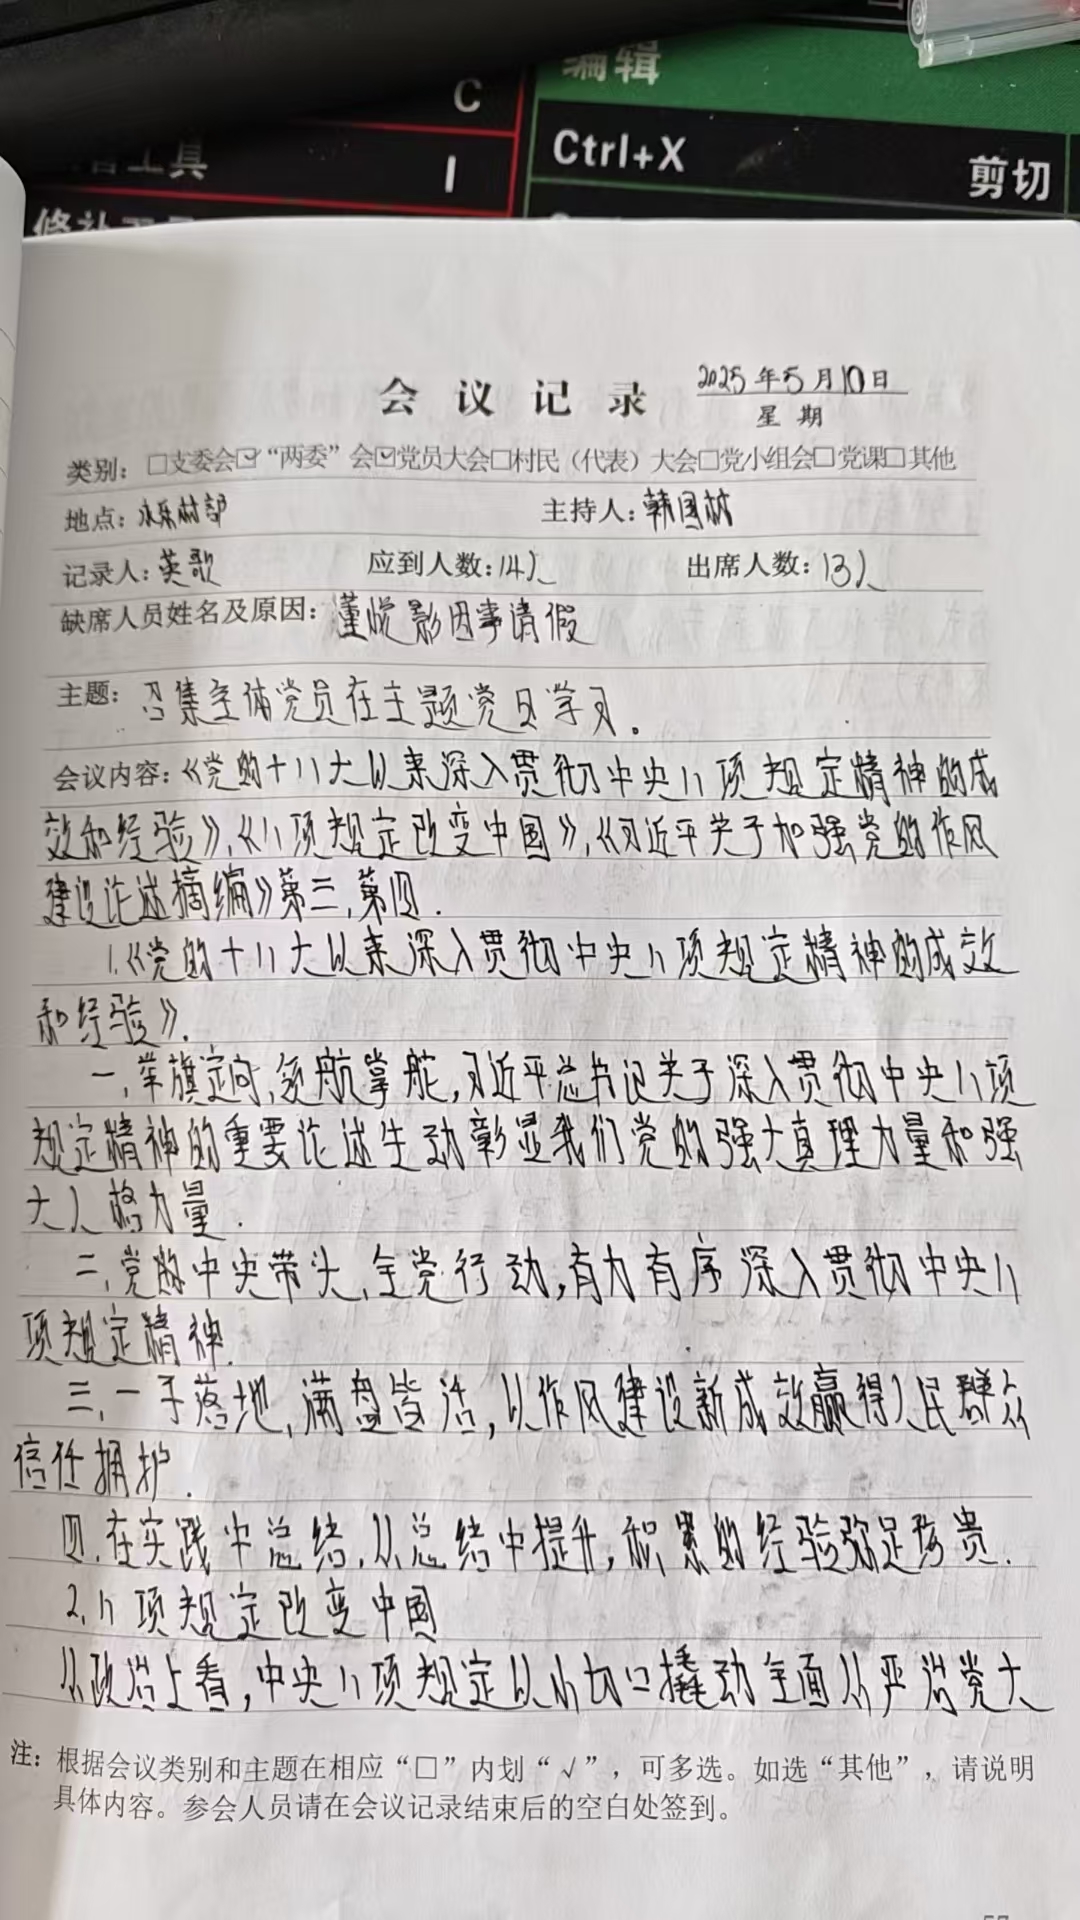 编辑
C
Ctrl+X
剪切
工具
I
会议记录
2025年5月10日
星期
类别：□支委会☑“两委”会☑党员大会□村民（代表）大会□党小组会□党课□其他
地点：村部
主持人：韩国树
记录人：英歌
应到人数：14人
出席人数：13人
缺席人员姓名及原因：董悦影因事请假
主题：召集全体党员在主题党日学习。
会议内容：《党的十八大以来深入贯彻中央八项规定精神的成
效和经验》，《八项规定改变中国》，《习近平关于加强党的作风
建设论述摘编》第三，第四.
1.《党的十八大以来深入贯彻中央八项规定精神的成效
和经验》.
一，举旗定向，领航掌舵，习近平总书记关于深入贯彻中央八项
规定精神的重要论述生动彰显我们党的强大真理力量和强
大人格力量.
二，党的中央带头，全党行动，有力有序深入贯彻中央八
项规定精神.
三，一子落地，满盘皆活，以作风建设新成效赢得人民群众
信任拥护.
四，在实践中总结，从总结中提升，积累的经验弥足珍贵.
2，八项规定改变中国
从政治上看，中央八项规定以小切口撬动全面从严治党大
注：根据会议类别和主题在相应“□”内划“√”，可多选。如选“其他”，请说明
具体内容。参会人员请在会议记录结束后的空白处签到。